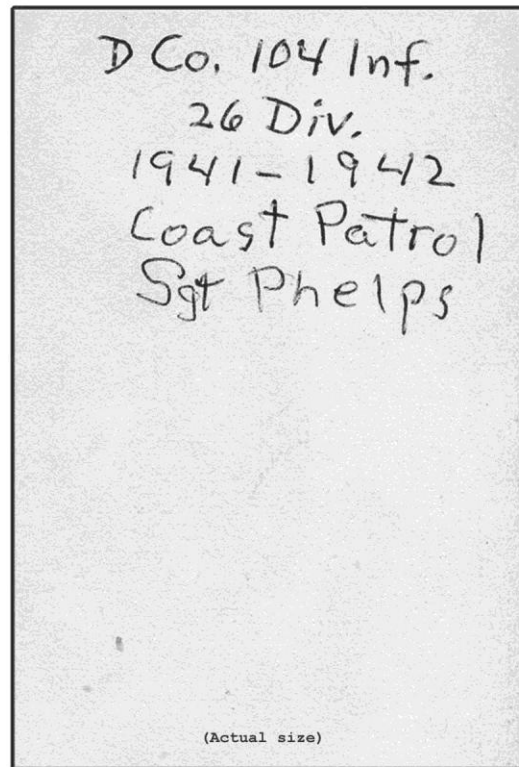 D Co. 104 Inf.
26 Div.
1941-1942
Coast Patrol
Sgt Phelps
(Actual size)